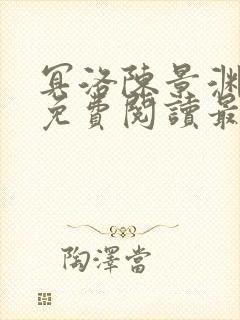 冥洛陳景淵
免費閱讀最
陶澤當